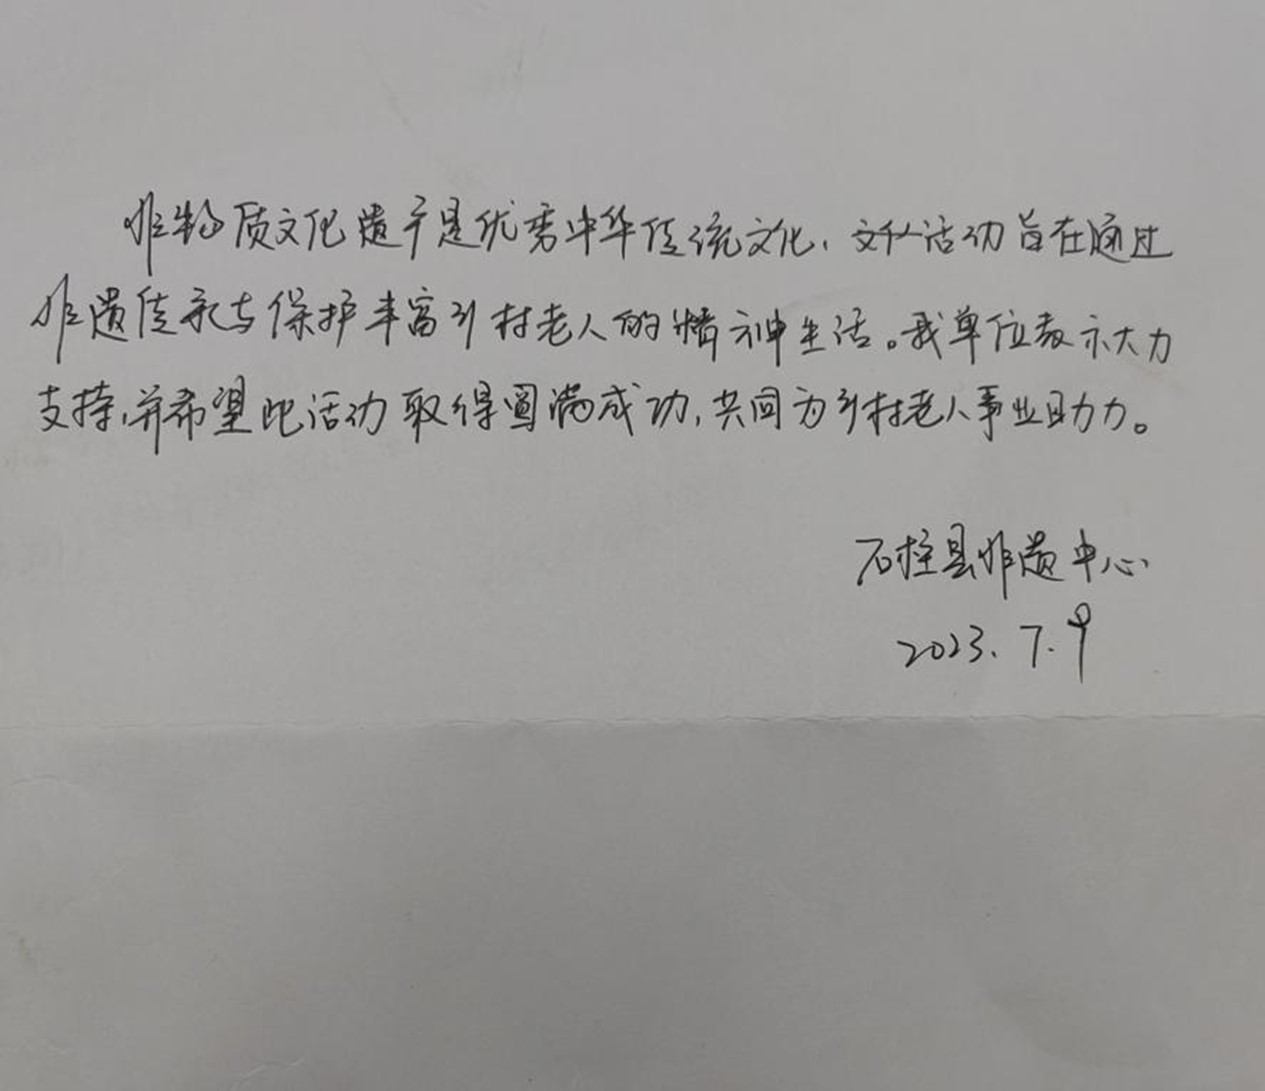 非物质文化遗产是优秀中华传统文化,文化活动旨在通过
非遗传承与保护丰富乡村老人的精神生活。我单位表示大力
支持,并希望此活动取得圆满成功,共同为乡村老人事业助力。
石柱县非遗中心
2023.7.9